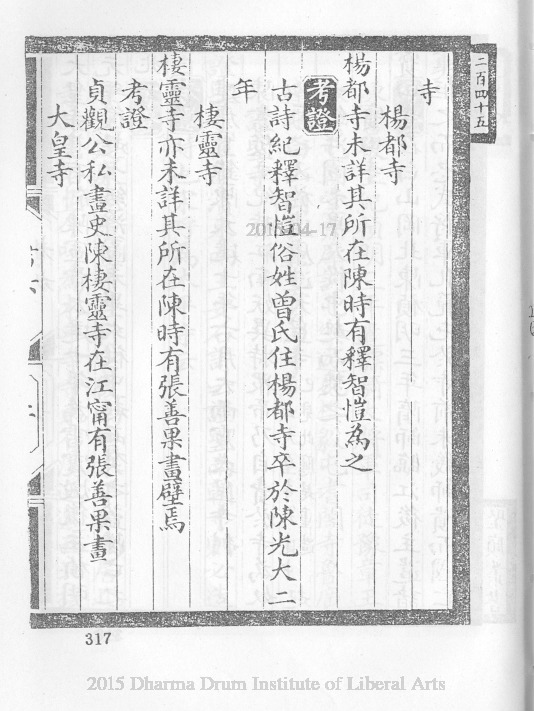 二百四十五
寺
楊都寺
楊都寺未詳其所在陳時有釋智愷為之
考證
古詩紀釋智愷俗姓曾氏住楊都寺卒於陳光大二
年
棲靈寺
棲靈寺亦未詳其所在陳時有張善果畫壁焉
考證
貞觀公私畫史陳棲靈寺在江甯有張善果畫
大皇寺
317
2015 Dharma Drum Institute of Liberal Arts